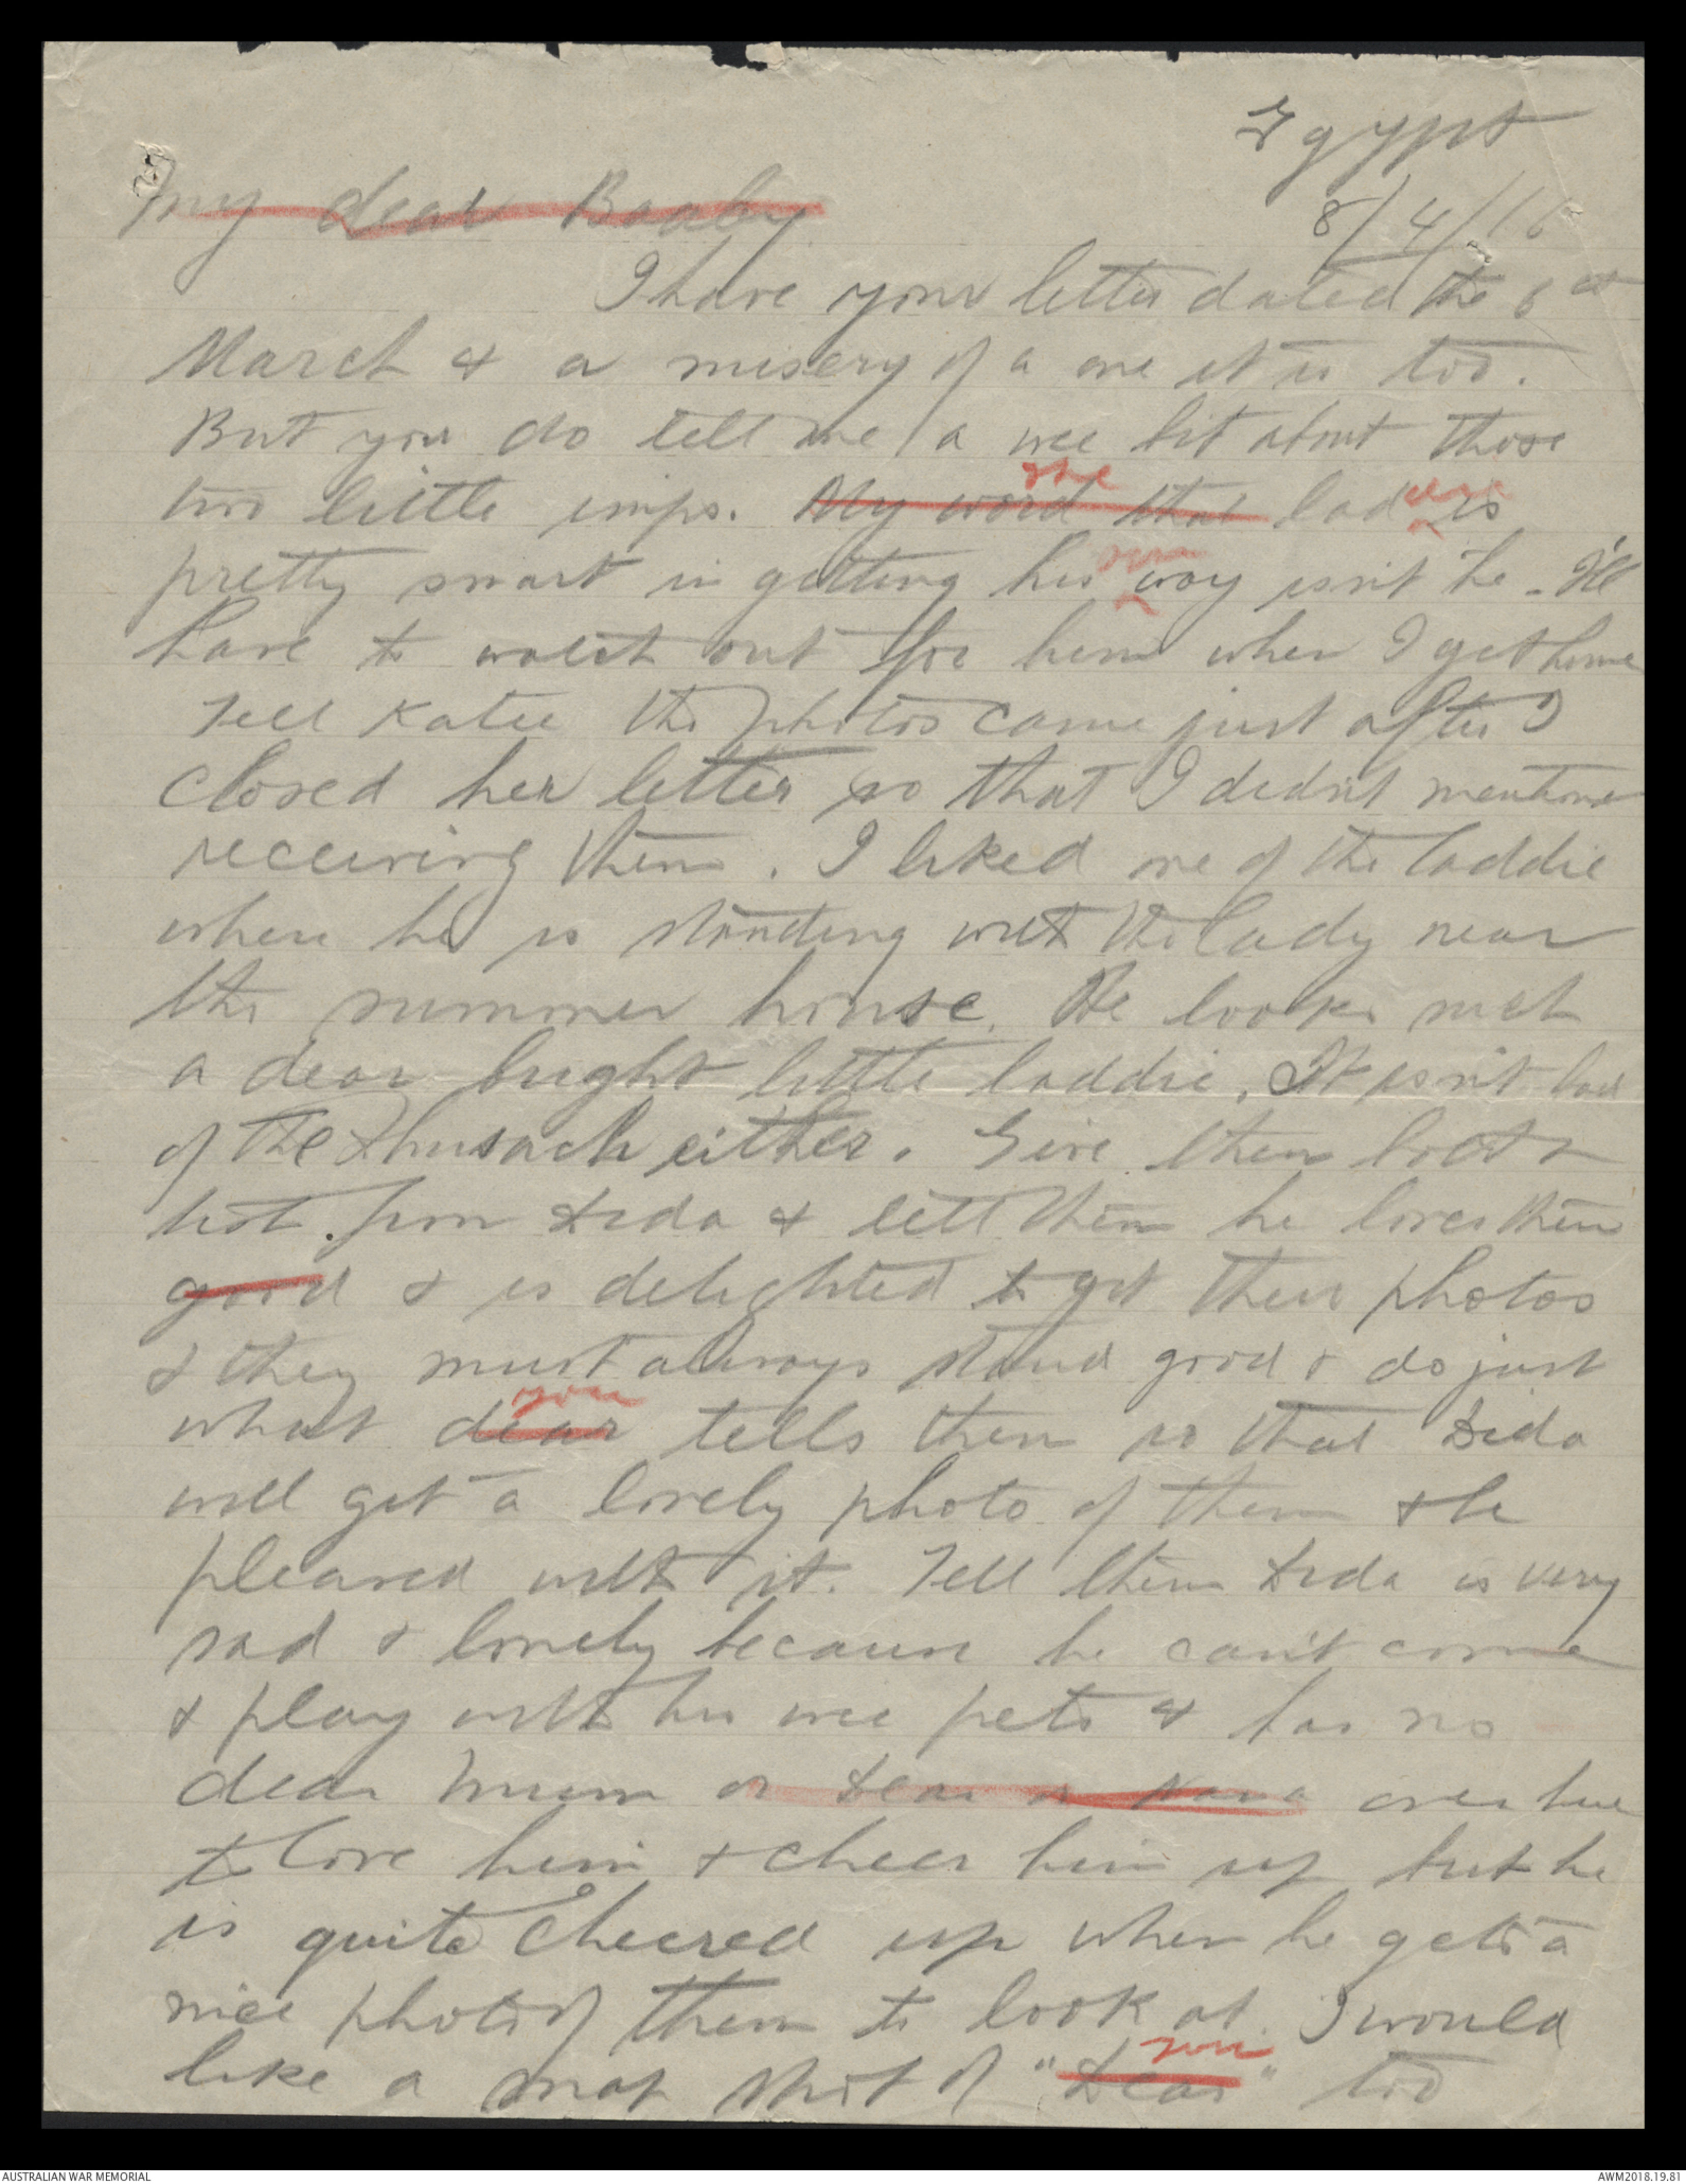 Egypt
8/4/16
My dear Baaby
I have your letter dated the 6th
March & a misery of a one it is too.
But you do tell me a wee bit about those
two little imps. My word that the laddie is
pretty smart in getting his own way isn't he. I'll
have to watch out for him when I get home
Tell Katie the photos came just after I
closed her letter so that I didn't mention
receiving them. I liked one of the laddie
where he is standing with the lady near
the summer house. He looks such
a dear bright little laddie. It isn't bad
of the either. Give them both a
hot from Dida & tell them he loves them
good & is delighted to get their photos
& they must always stand good & do just
what dear you tells them so that Dida
will get a lovely photo of them & be
pleased with it. Tell them Dida is very
sad & lonely because he can't come
& play with his wee pets & has no
dear Mum or Dear or Nana over here
to love him & cheer him up but he
is quite cheered up when he gets a
nice photo of them to look at. I would
like a snap shot of "Dear" you too
AUSTRALIAN WAR MEMORIAL
AWM2018.19.81